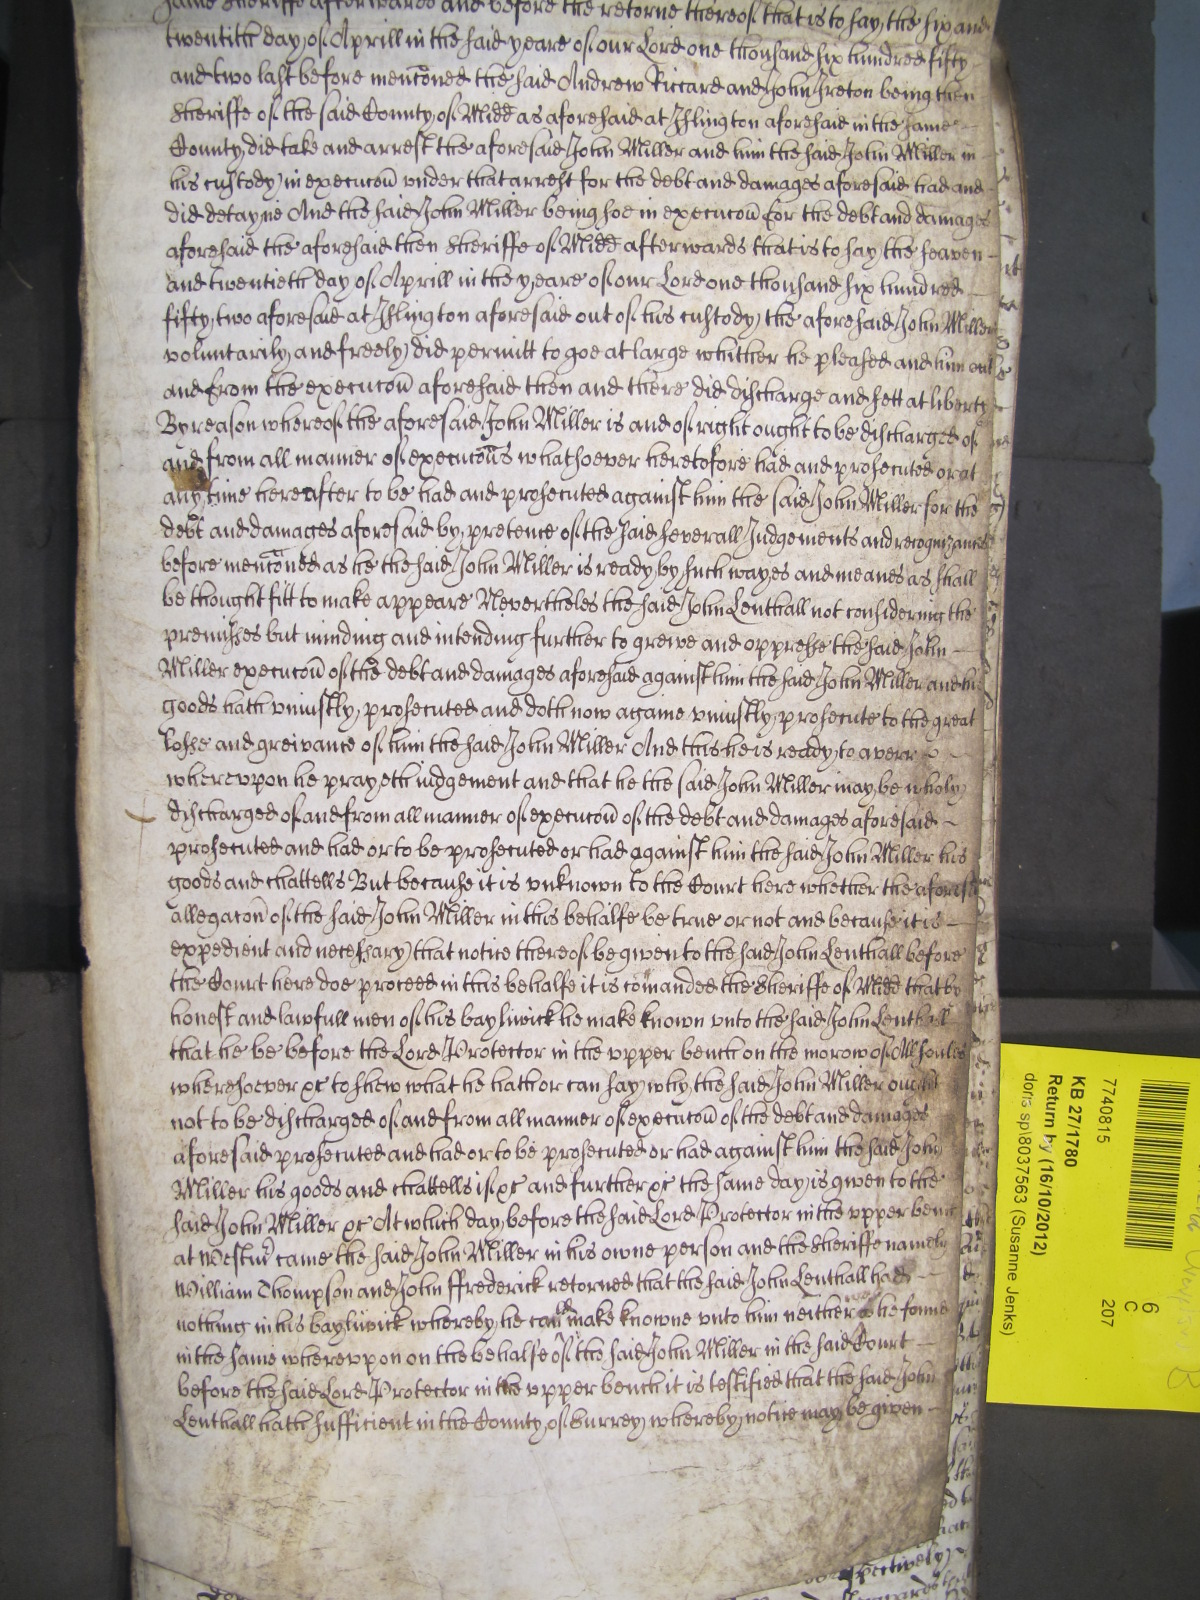 same Sheriffe afterwards and before the retorne thereof that is to say the six and
twentith day of Aprill in the said yeare of our Lord one thousand six hundred fifty
and two last before menc̃oned the said Andrew Riccard and John Ireton being then
Sheriffe of the said County of Midd as aforesaid at Islington aforesaid in the same
County did take and arrest the aforesaid John Miller and him the said John Miller in
his custody in execuc̃on vnder that arrest for the debt and damages aforesaid had and
did detayne And the said John Miller being soe in execuc̃on for the debt and damages
aforesaid the aforesaid then Sheriffe of Midd afterwards that is to say the seaven
and twentieth day of Aprill in the yeare of our Lord one thousand six hundred
fifty two aforesaid at Islington aforesaid out of his custody the aforesaid John Miller
voluntarily and freely did permitt to goe at large whither he pleased and him out
and from the execuc̃on aforesaid then and there did discharge and sett at liberty
By reason whereof the aforesaid John Miller is and of right ought to be discharged of
and from all manner of execuc̃ons whatsoever heretofore had and prosecuted or at
any time hereafter to be had and prosecuted against him the said John Miller for the
debt and damages aforesaid by pretence of the said severall Judgements and recognizances
before menc̃oned as he the said John Miller is ready by such wayes and meanes as shall
be thought fitt to make appeare Nevertheles the said John Lenthall not considering the
premisses but minding and intending further to greive and oppresse the said John
Miller execuc̃on of the debt and damages aforesaid against him the said John Miller and his
goods hath vniustly prosecuted and doth now againe vniustly prosecute to the great
losse and greivance of him the said John Miller And this he is ready to averr
wherevpon he prayeth iudgement and that he the said John Miller may be wholy
discharged of and from all manner of execuc̃on of the debt and damages aforesaid
prosecuted and had or to be prosecuted or had against him the said John Miller his
goods and chattells But because it is vnknown to the Court here whether the aforesaid
allegac̃on of the said John Miller in this behalfe be true or not and because it is
expedient and necessary that notice thereof be given to the said John Lenthall before
the Court here doe proceed in this behalfe it is com̃anded the Sheriffe of Midd that by
honest and lawfull men of his bayliwick he make known vnto the said John Lenthall
that he be before the Lord Protector in the vpper bench on the morow of All soules
wheresoever &c to shew what he hath or can say why the said John Miller ought
not to be discharged of and from all manner of execuc̃on of the debt and damages
aforesaid prosecuted and had or to be prosecuted or had against him the said John
Miller his goods and chattells if &c and further &c the same day is given to the
said John Miller &c At which day before the said Lord Protector in the vpper bench
at Westm̃ came the said John Miller in his owne person and the Sheriffe namely
William Thompson and John ffrederick retorned that the said John Lenthall had
nothing in his bayliwick whereby he can make knowne vnto him neither is he found
in the same wherevpon on the behalfe of the said John Miller in the said Court
before the said Lord Protector in the vpper bench it is testified that the said John
Lenthall hath sufficient in the County of Surrey whereby notice may be given
7740815
KB 27/1780
Return by (16/10/2012)
doris sp\8037563 (Susanne Jenks)
6
C
207